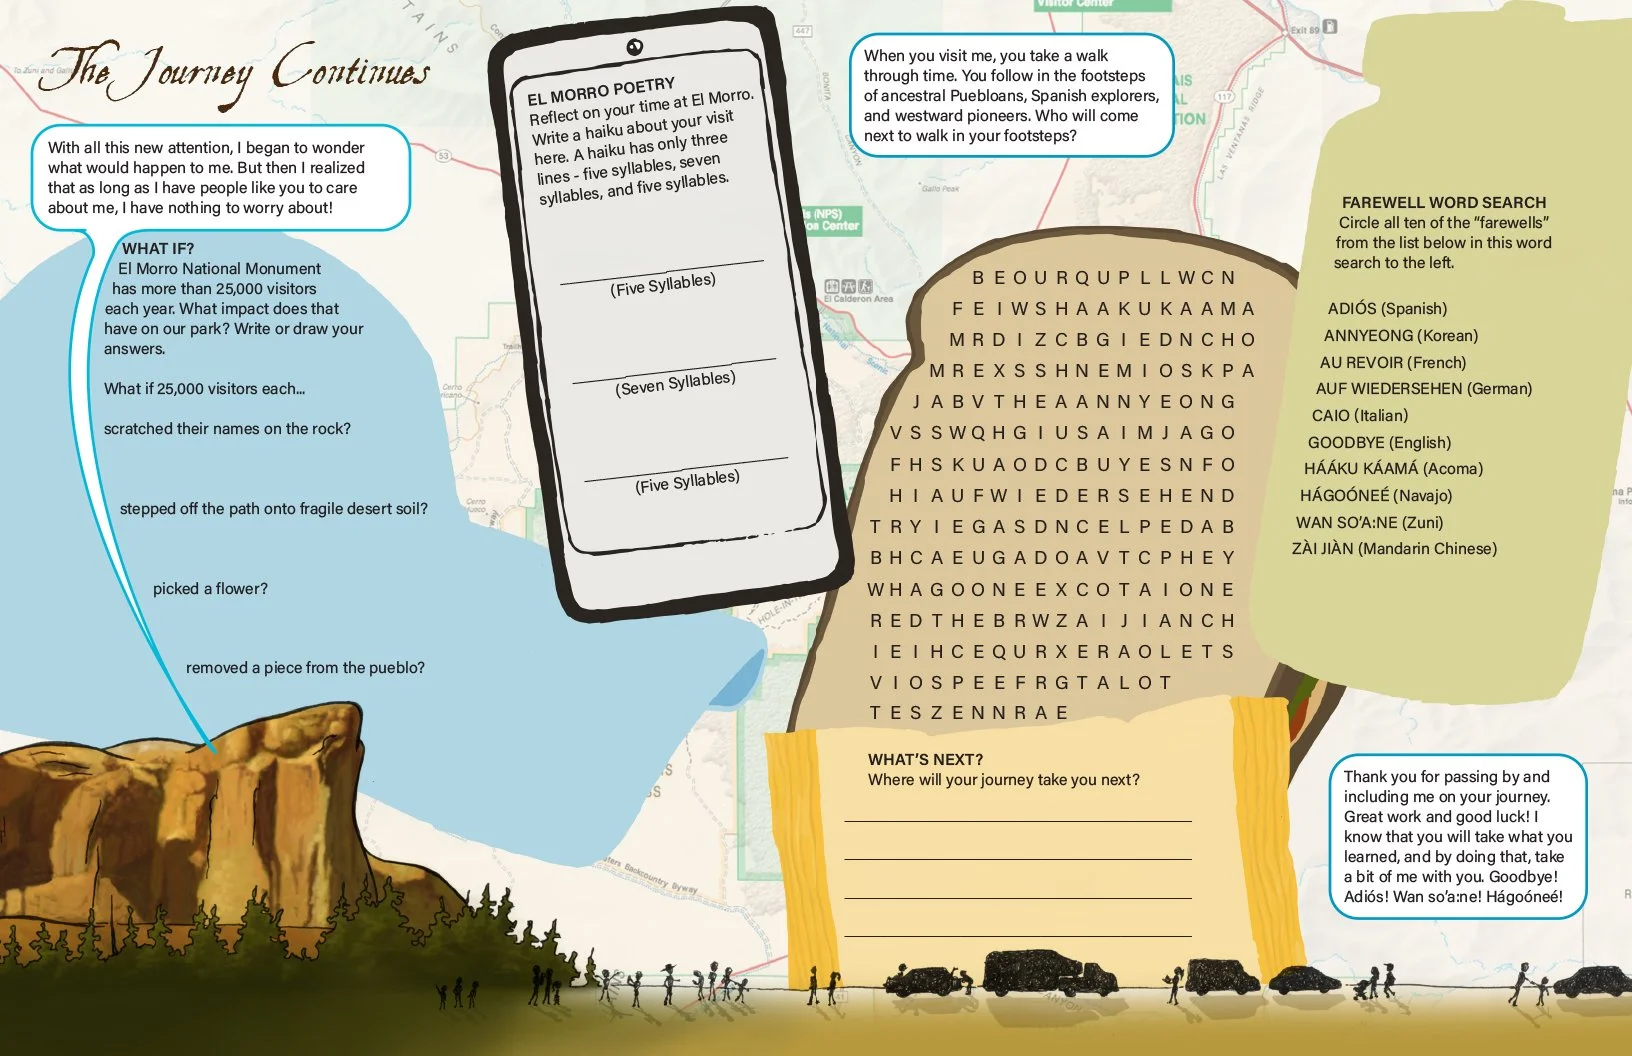 The Journey Continues
With all this new attention, I began to wonder
what would happen to me. But then I realized
that as long as I have people like you to care
about me, I have nothing to worry about!
WHAT IF?
El Morro National Monument
has more than 25,000 visitors
each year. What impact does that
have on our park? Write or draw your
answers.
What if 25,000 visitors each...
scratched their names on the rock?
stepped off the path onto fragile desert soil?
picked a flower?
removed a piece from the pueblo?
EL MORRO POETRY
Reflect on your time at El Morro.
Write a haiku about your visit
here. A haiku has only three
lines - five syllables, seven
syllables, and five syllables.
(Five Syllables)
(Seven Syllables)
(Five Syllables)
When you visit me, you take a walk
through time. You follow in the footsteps
of ancestral Puebloans, Spanish explorers,
and westward pioneers. Who will come
next to walk in your footsteps?
B E O U R Q U P L L W C N
F E I W S H A A K U K A A M A
M R D I Z C B G I E D N C H O
M R E X S S H N E M I O S K P A
J A B V T H E A A N N Y E O N G
V S S W Q H G I U S A I M J A G O
F H S K U A O D C B U Y E S N F O
H I A U F W I E D E R S E H E N D
T R Y I E G A S D N C E L P E D A B
B H C A E U G A D O A V T C P H E Y
W H A G O O N E E X C O T A I O N E
R E D T H E B R W Z A I J I A N C H
I E I H C E Q U R X E R A O L E T S
V I O S P E E F R G T A L O T
T E S Z E N N R A E
FAREWELL WORD SEARCH
Circle all ten of the “farewells”
from the list below in this word
search to the left.
ADIÓS (Spanish)
ANNYEONG (Korean)
AU REVOIR (French)
AUF WIEDERSEHEN (German)
CAIO (Italian)
GOODBYE (English)
HÁÁKU KÁAMÁ (Acoma)
HÁGOÓNEÉ (Navajo)
WAN SO’A:NE (Zuni)
ZÀI JIÀN (Mandarin Chinese)
WHAT’S NEXT?
Where will your journey take you next?
Thank you for passing by and
including me on your journey.
Great work and good luck! I
know that you will take what you
learned, and by doing that, take
a bit of me with you. Goodbye!
Adiós! Wan so’a:ne! Hágoóneé!
Visitor Center
Exit 89
447
117
53
LAS VENTANAS RIDGE
Gallo Peak
(NPS)
Center
El Calderon Area
BONITA
CANYON
Backcountry Byway